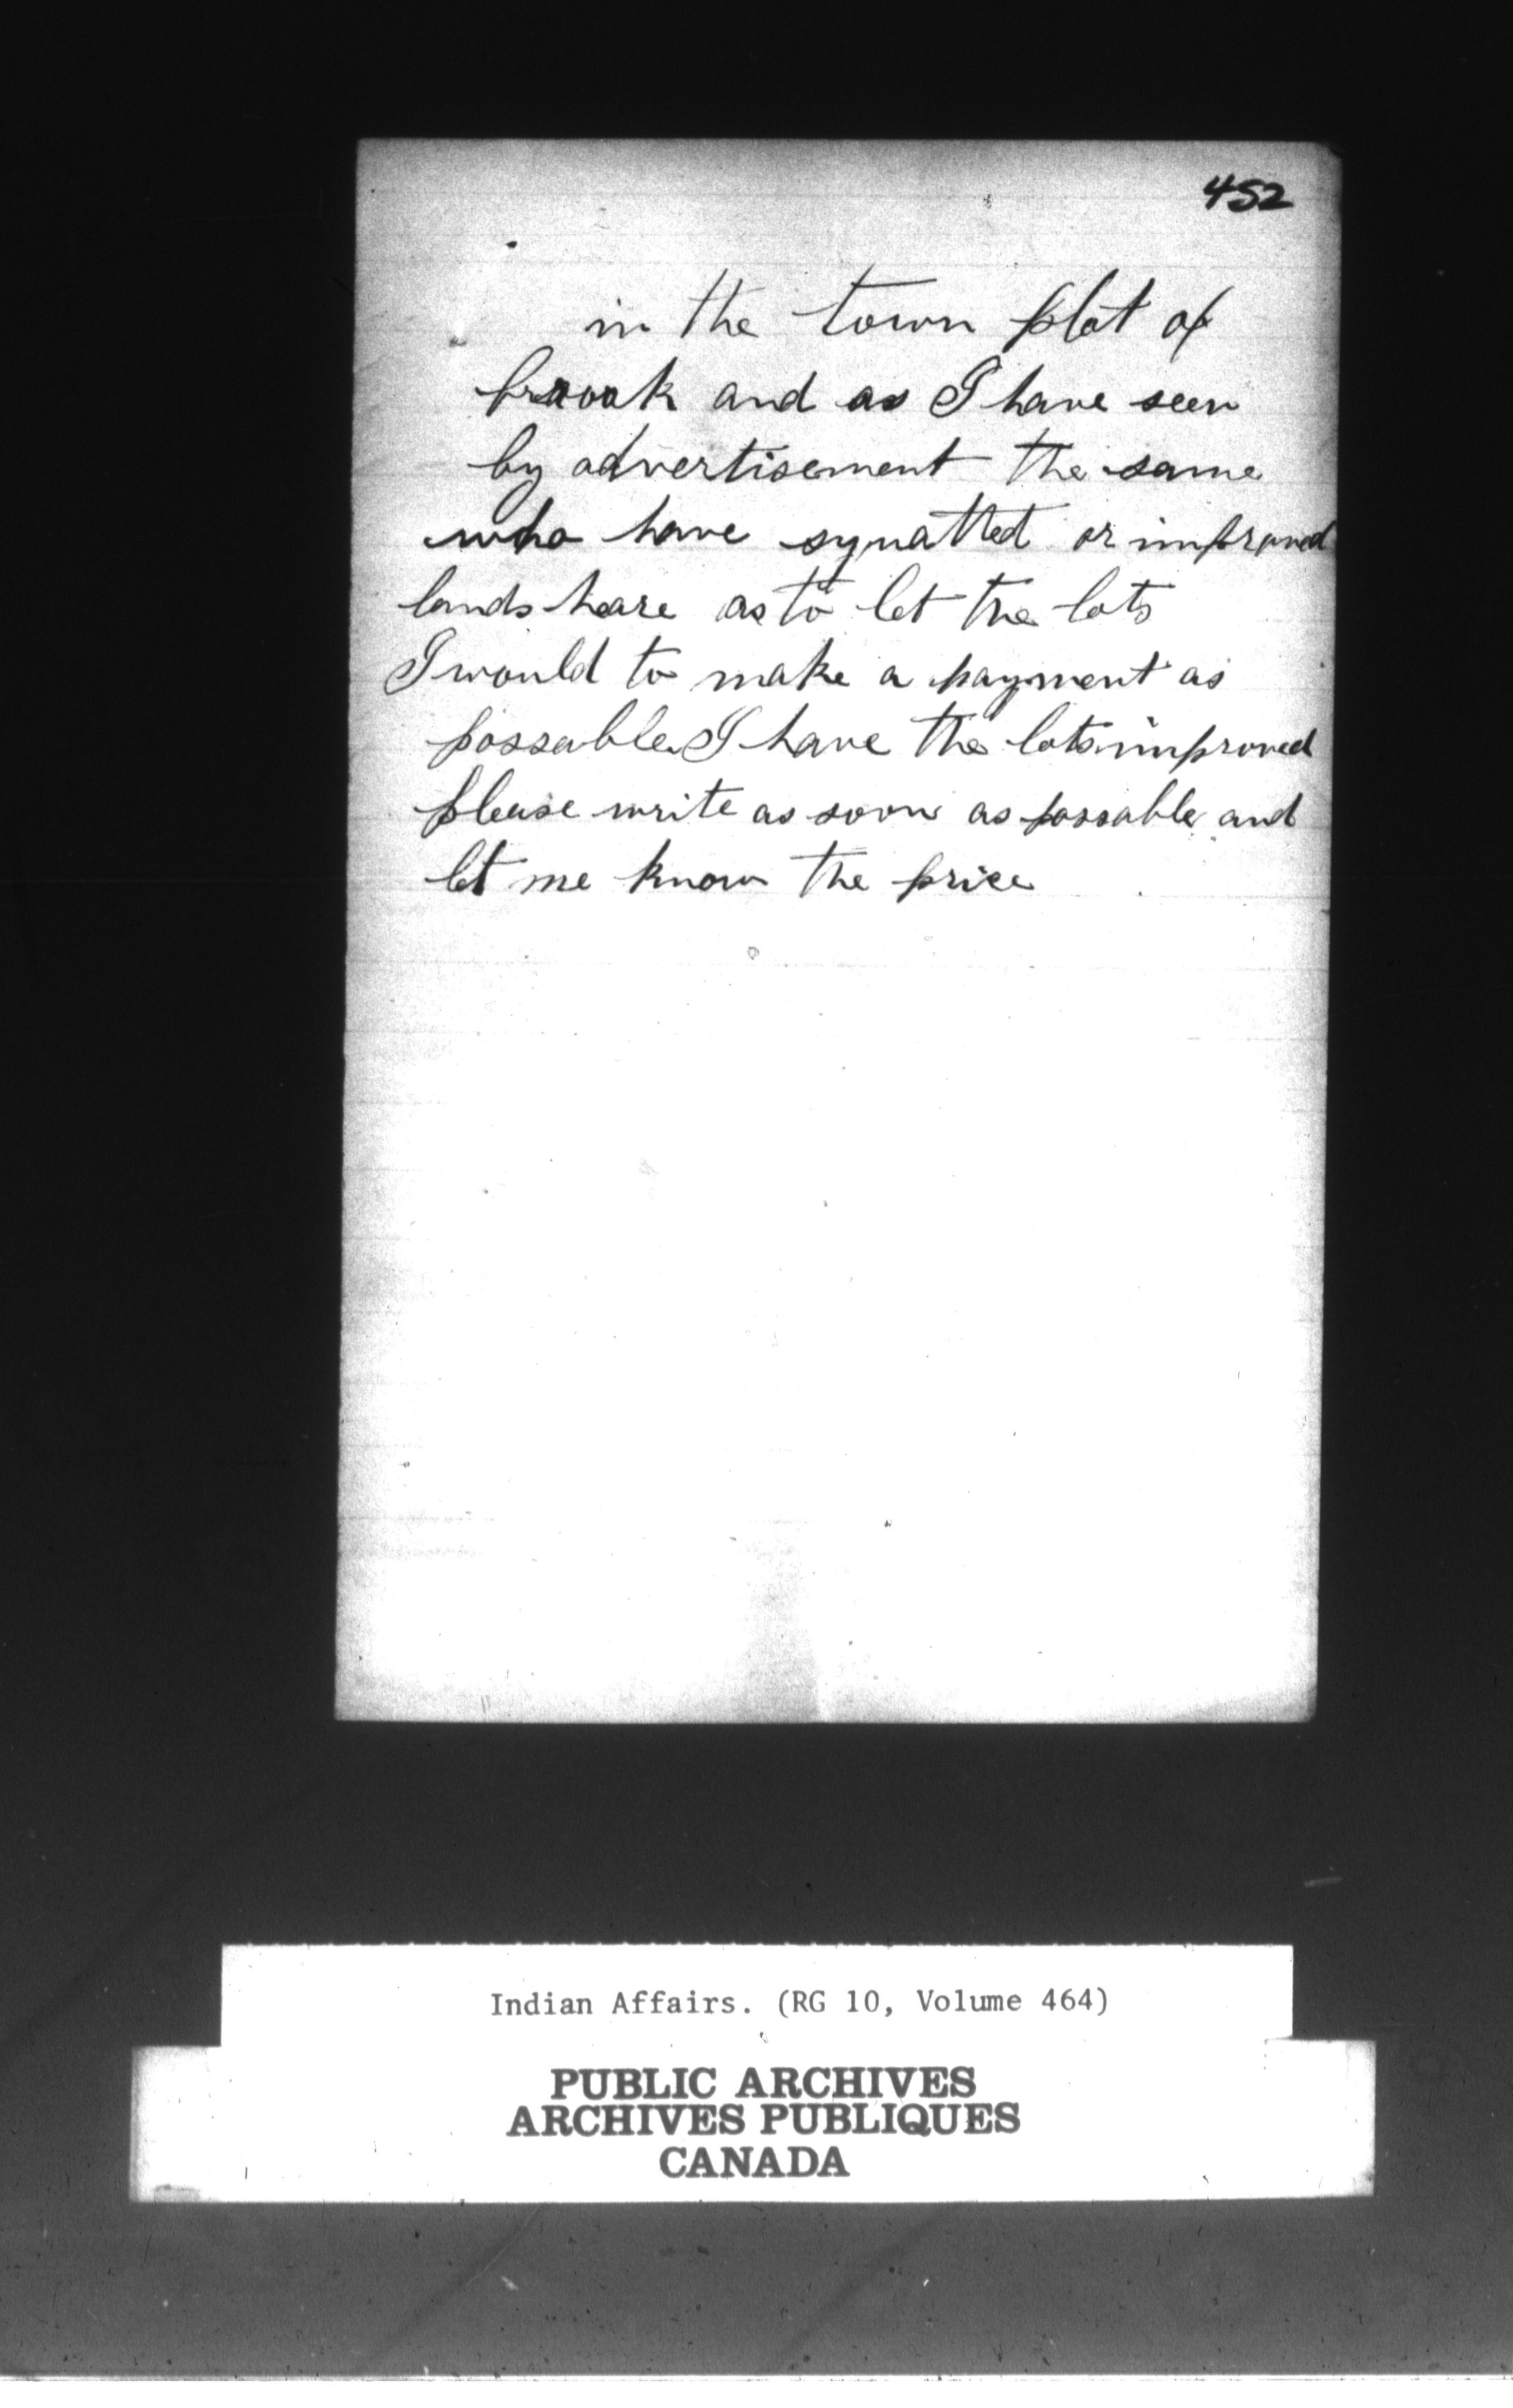 452
in the town plot of
brook and as I have seen
by advertisement the same
who have squatted or improved
lands heare as to let the lots
I would to make a payment as
possable I have the lots improved
please write as soon as possable and
let me know the price
Indian Affairs. (RG 10, Volume 464)
PUBLIC ARCHIVES
ARCHIVES PUBLIQUES
CANADA